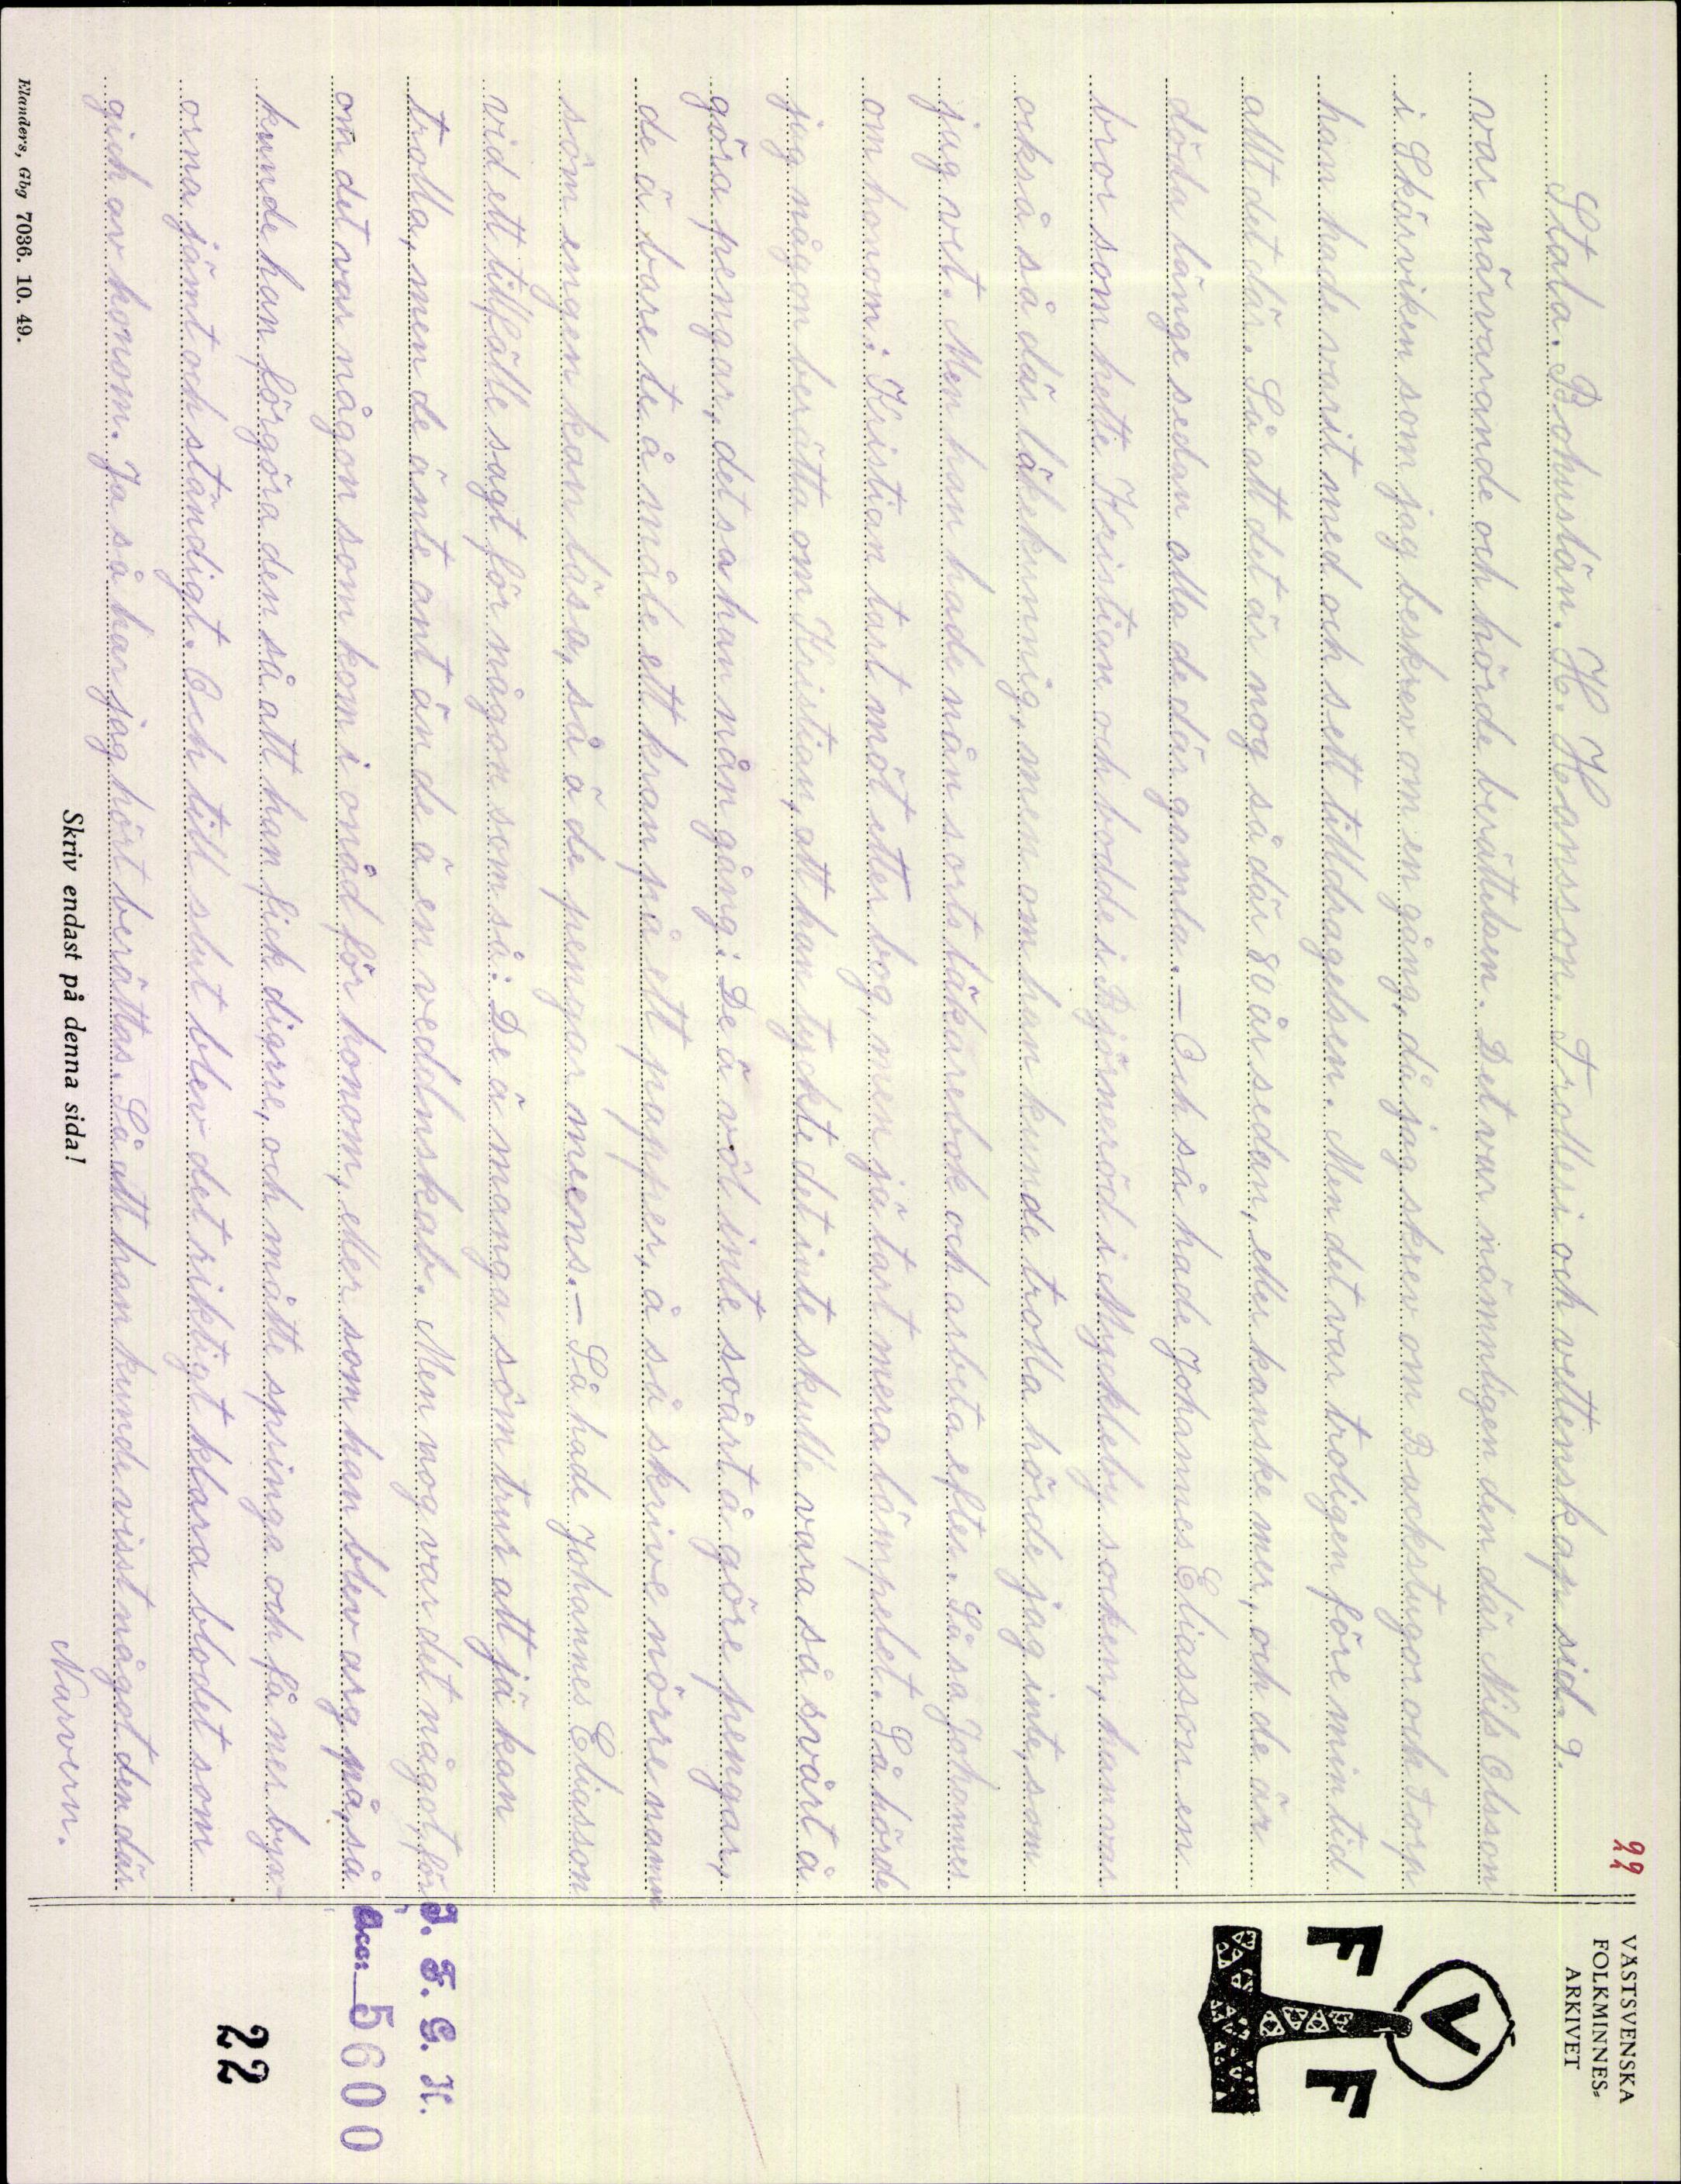 22
VÄSTSVENSKA
FOLKMINNES-
ARKIVET
V
F F
Stala. Bohuslän. H. Hansson. Trolleri och vettenskap sid. 9.
var närvarande och hörde berättelsen. Det var nämnligen den där Nils Olsson
i Skårviken som jag beskrev om en gång, då jag skrev om Backstugor ock torp
han hade varit med och sett tilldragelsen. Men det var troligen före min tid
allt det där. Så att det är nog så där 80 år sedan, eller kanske mer, och de är
döda länge sedan alla de där gamla. — Och så hade Johannes Eliasson en
bror som hette Kristian och bodde i Björneröd i Myckleby socken, han var
också så där läkekunnig, men om han kunde trolla hörde jag inte, som
jag vet. Men han hade nån sorts läkarebok och arbeta efter. Så sa Johannes
om honom: Kristian tart möt etter bog, men jä tart mera lämpelet. Så hörde
jag någon berätta om Kristian, att han tyckte det inte skulle vara så svårt å
göra pengar, det sa han nån gång: De ä väl inte svårt å göre pengar,
de ä bare te å måle ett kran på ett papper, å så skrive nörre namn
söm engen kan läse, så ä de pengar meens. — Så hade Johannes Eliasson
vid ett tillfälle sagt för någon som så: De ä manga söm trur att jä kan
trolla, men de änte ant än de ä en veddnskab. Men nog var det något, för
om det var någon som kom i onåd för honom, eller som han blev arg på, så
kunde han förgöra den så att han fick diarre, och måtte springa och få ner byx-
orna jämt och ständigt. Och till slut blev det riktigt klara blodet som
gick av honom. Ja så har jag hört berättas. Så att han kunde visst något den där
Narvern.
I. F. G. H.
Acc: 5600
22
Skriv endast på denna sida!
Elanders, Gbg 7036. 10. 49.